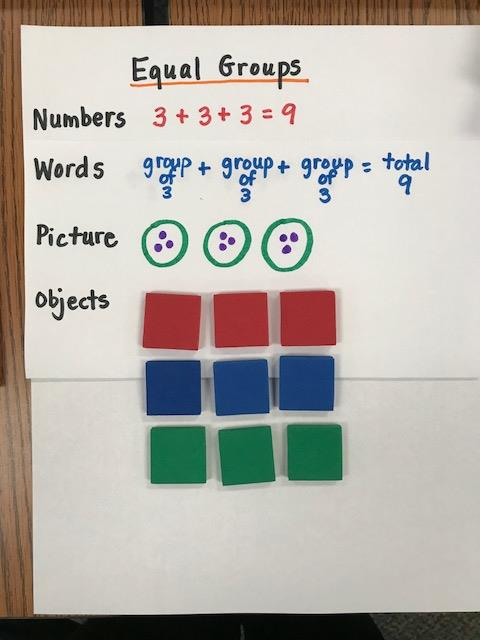 Equal Groups
Numbers 3 + 3 + 3 = 9
Words group of 3 + group of 3 + group of 3 = total 9
Picture
Objects